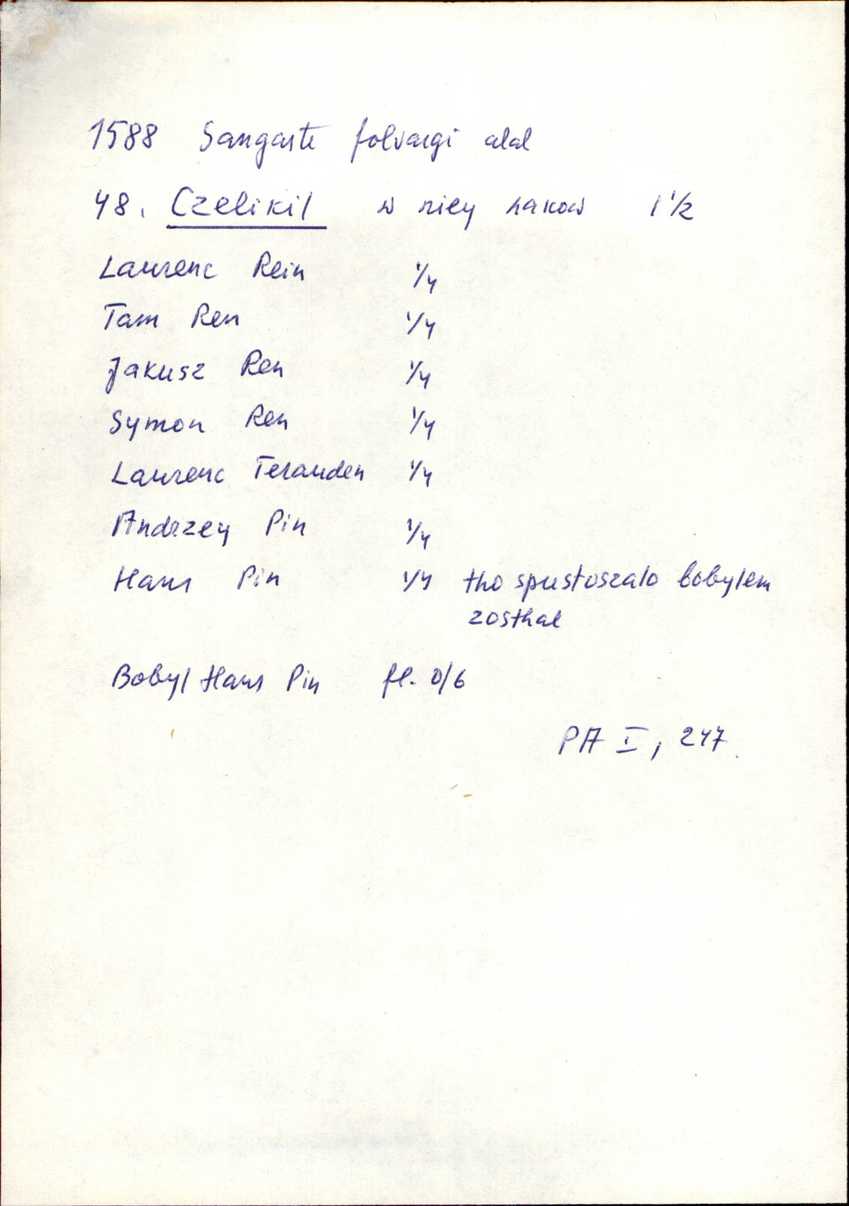 1588 Sangaste folvargi alal
48. Czelikil w niey hakow 1 1/2
Laurenc Rein 1/4
Tam Ren 1/4
Jakusz Ren 1/4
Symon Ren 1/4
Laurenc Terauden 1/4
Andrzey Pin 1/4
Hans Pin 1/4 tho spustoszalo bobylem
zosthal
Bobyl Hans Pin fl. 0/6
PA I, 247